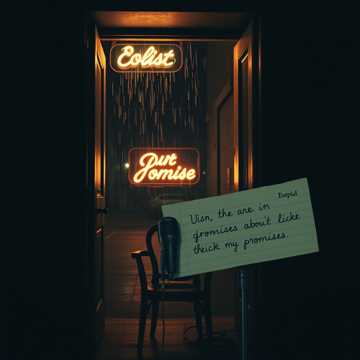 Eolist
Dut
Jomise
Visn, the are in
gromises about licke
theick my promises.